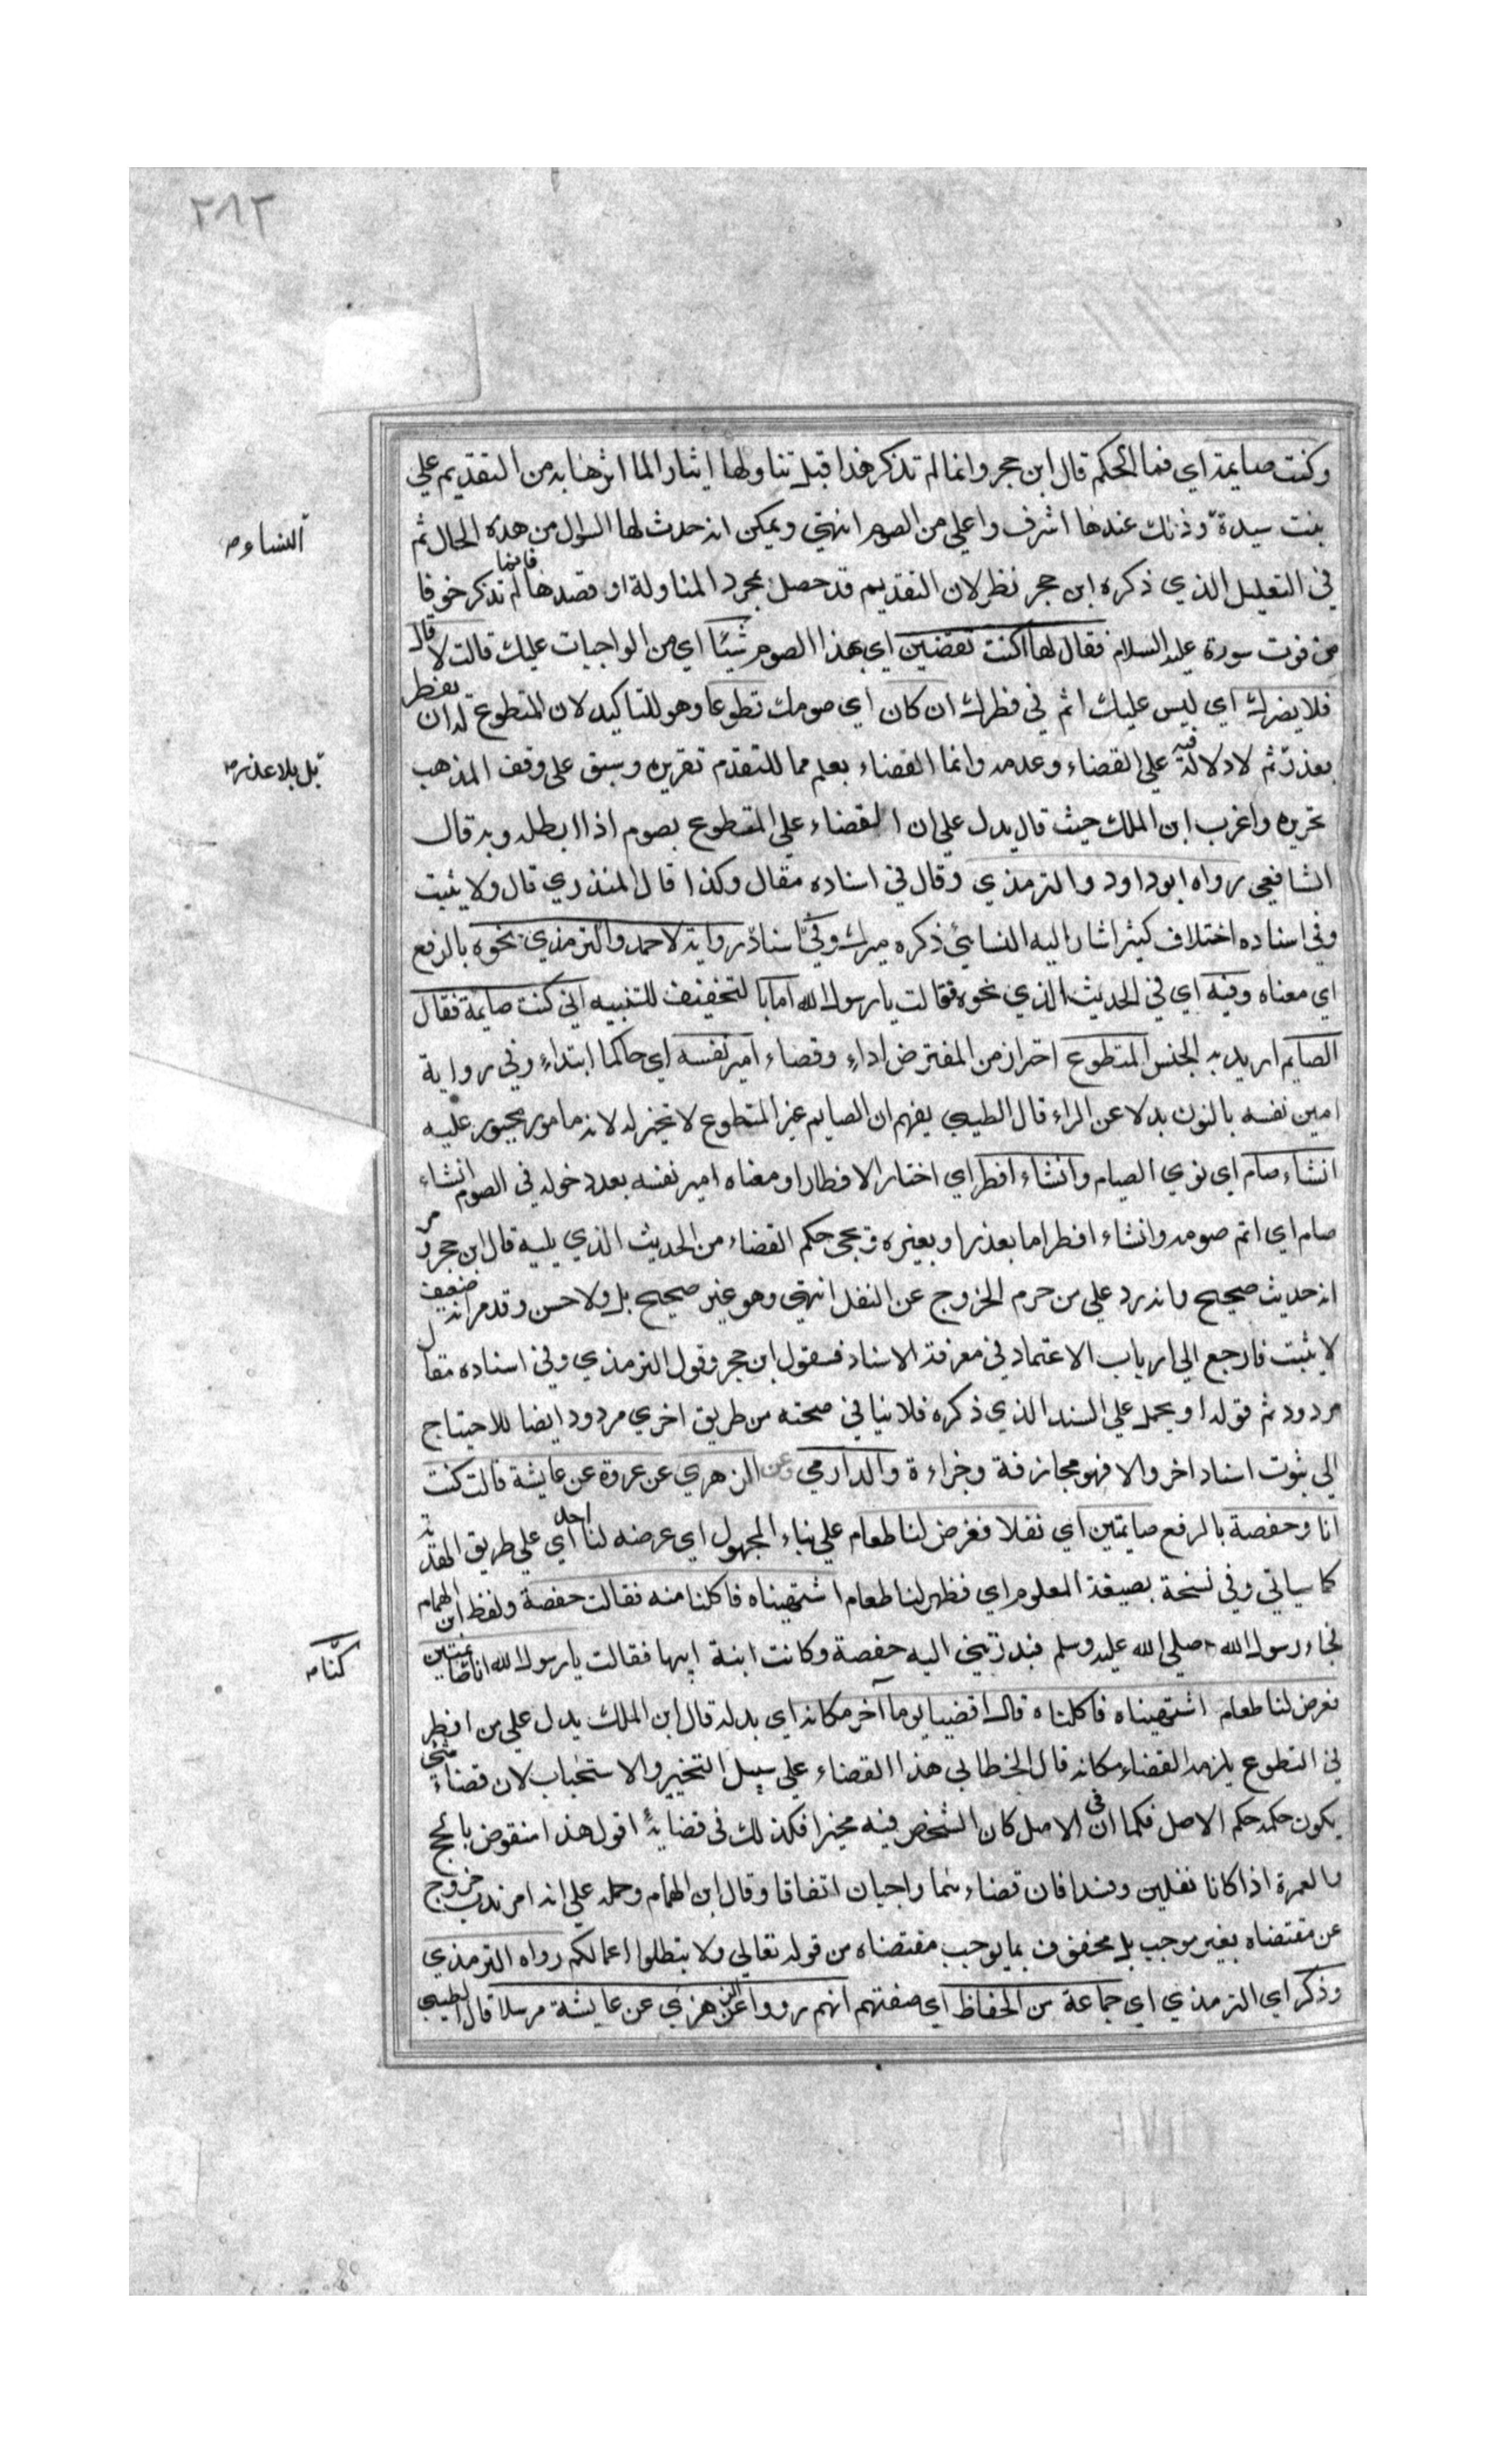 ٢٨٢
وكنت صايمة اي فما الحكم قال ابن حجر وانما لم تذكر هذا قبل تناولها ايثارا لما اثرها به من التقديم علي
بنت سيدة وذلك عندها اشرف واعلي من الصوم انتهي ويمكن انه حدث لها السوال من هذه الحال ثم
النساء
في التعليل الذي ذكره ابن حجر نظر لان التقديم قد حصل بمجرد المناولة او قصدها فانما لم تذكر خوفا
من فوت سورة عليه السلام فقال لها اكنت تقضين اي بهذا الصوم شيئا اي من الواجبات عليك قالت لا قال
فلا يضرك اي ليس عليك اثم في فطرك ان كان اي صومك تطوعا وهو للتاكيد لان المتطوع له ان يفطر
بعذر ثم لا دلالة فيه علي القضاء وعدمه وانما القضاء يعلم مما للتقدم تقريره وسبق علي وقف المذهب
بل بلا عذر
تحريره واغرب ابن الملك حيث قال يدل علي ان القضاء علي المتطوع بصوم اذا ابطله وبه قال
الشافعي رواه ابو داود والترمذي وقال في اسناده مقال وكذا قال المنذري قال ولا يثبت
وفي اسناده اختلاف كثير اشار اليه النسائي ذكره ميرك وفي اسناد رواية لاحمد والترمذي نحوه بالرفع
اي معناه وفيه اي في الحديث الذي نحوه فقالت يا رسول الله اما بالتخفيف للتنبيه اني كنت صايمة فقال
الصايم اريد به الجنس المتطوع احتراز من المفترض اداء وقضاء امير نفسه اي حاكما ابتداء وفي رواية
امين نفسه بالنون بدلا عن الراء قال الطيبي يفهم ان الصايم غير المتطوع لا تخير له لانه مامور مجبور عليه
ان شاء صام اي نوي الصيام وان شاء افطر اي اختار الافطار او معناه امير نفسه بعد دخوله في الصوم ان شاء
صام اي اتم صومه وان شاء افطر اما بعذر او بغيره ويجي حكم القضاء من الحديث الذي يليه قال ابن حجر ومر
انه حديث صحيح وانه يرد علي من حرم الخروج عن النفل انتهي وهو غير صحيح بل ولا حسن وقد مر انه ضعيف
لا يثبت فارجع الي ارباب الاعتماد في معرفة الاسناد فسقول ابن حجر وقول الترمذي وفي اسناده مقال
مردود ثم قوله او يحمل علي السند الذي ذكره فلا ينافي صحته من طريق اخري مردود ايضا للاحتياج
الي ثبوت اسناد اخر والا فهو مجازفة وجراءة والدارمي وعن الزهري عن عروة عن عايشة قالت كنت
انا وحفصة بالرفع صايمتين اي نفلا فعرض لنا طعام علي بناء المجهول اي عرضه لنا احد اي علي طريق الهدية
كما سياتي وفي نسخة بصيغة المعلوم اي فظهر لنا طعام اشتهيناه فاكلنا منه فقالت حفصة ولفظ ابن الهمام
فجاء رسول الله صلي الله عليه وسلم فبدرتني اليه حفصة وكانت ابنة ابيها فقالت يا رسول الله انا صايمتين
كنا
فعرض لنا طعام اشتهيناه فاكلناه قال اقضيا يوما آخر مكانه اي بدله قال ابن الملك يدل علي من افطر
في التطوع يلزمه القضاء مكانه قال الخطابي هذا القضاء علي سبيل التخيير والاستحباب لان قضاء شئ
يكون حكمه حكم الاصل فكما ان في الاصل كان الشخص فيه مخيرا فكذلك في قضايه اقول هذا منقوض بالحج
والعمرة اذا كانا نفلين وفسدا فان قضاءهما واجبان اتفاقا وقال ابن الهمام وحمله علي انه امر ندب خروج
عن مقتضاه بغير موجب بل محفوف بما يوجب مقتضاه من قوله تعالي ولا تبطلوا اعمالكم رواه الترمذي
وذكر اي الترمذي اي جماعة من الحفاظ اي صفتهم انهم رووا عن الزهري عن عايشة مرسلا قال الطيبي